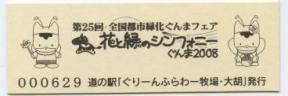 第25回 全国都市緑化ぐんまフェア
花と緑のシンフォニー
ぐんま2008
000629 道の駅「ぐりーんふらわー牧場・大胡」発行